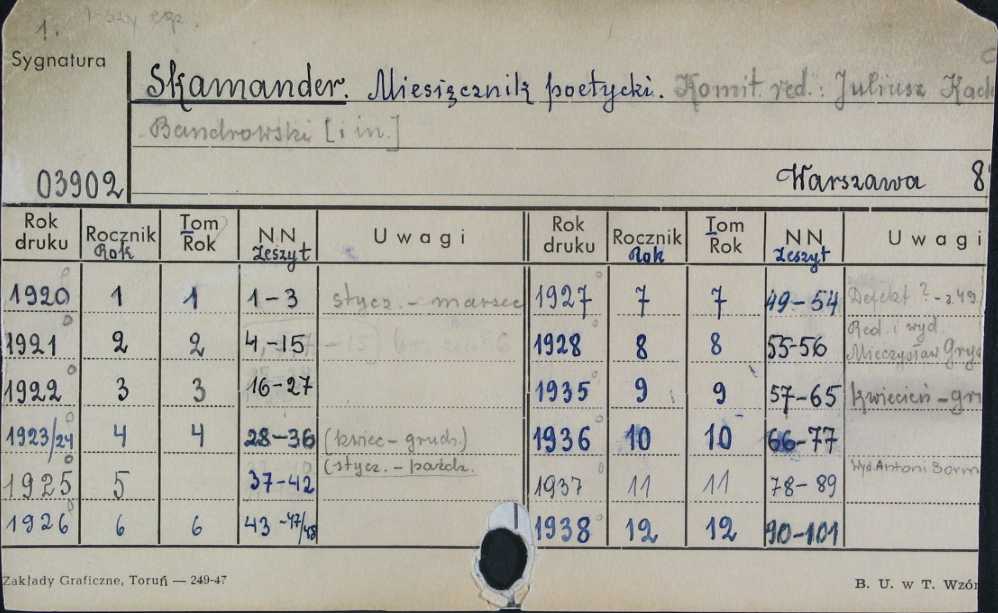 1. 1-szy egz.
Sygnatura
Skamander. Miesięcznik poetycki. Komit. red.: Juliusz Kade
Bandrowski [i in.]
03902
Warszawa 8°
Rok druku Rocznik Rok Tom Rok NN Zeszyt Uwagi Rok druku Rocznik Rok Tom Rok NN Zeszyt Uwagi
1920 1 1 1-3 stycz. - marzec 1927 7 7 49-54 Defekt ? - z. 49
1921 2 2 4-15 1928 8 8 55-56 Red. i wyd. Mieczysław Gryd
1922 3 3 16-27 1935 9 9 57-65 kwiecień - gr
1923/24 4 4 28-36 (kwiec - grudz.) 1936 10 10 66-77
1925 5 37-42 (stycz. - paźdz. 1937 11 11 78-89 Wyd. Antoni Borm
1926 6 6 43-47/48 1938 12 12 90-101
Zakłady Graficzne, Toruń — 249-47 B. U. w T. Wzór